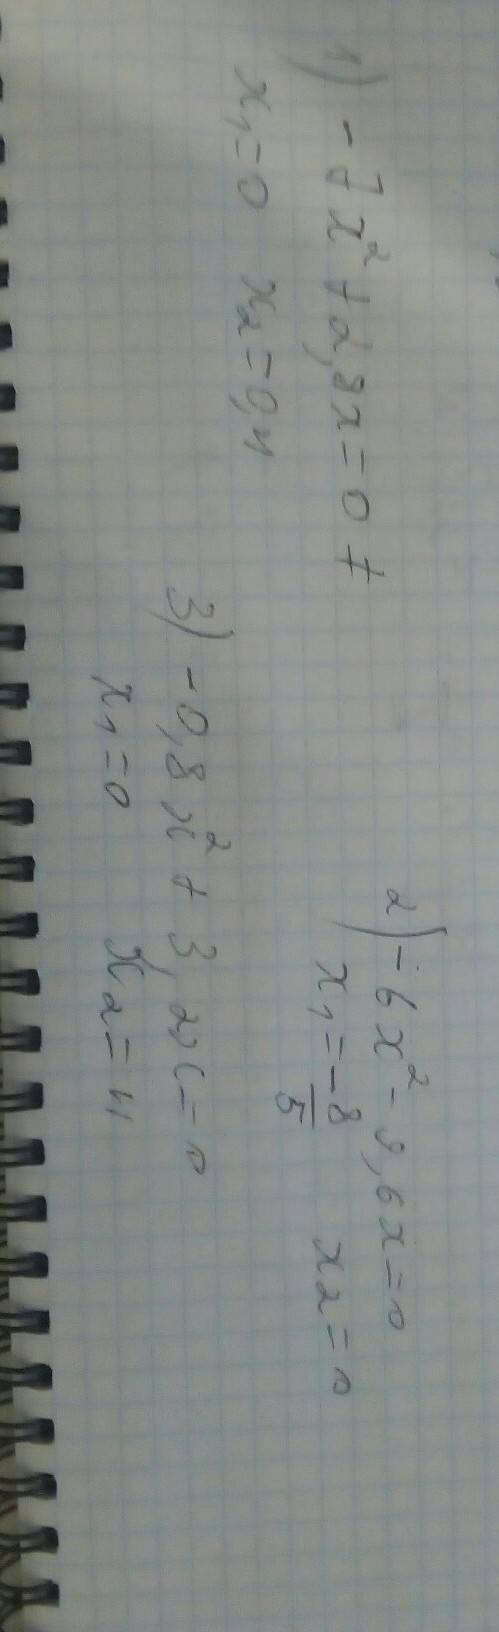 1) -7x² + 2,8x = 0 +
x₁ = 0 x₂ = 0,4
2) -6x² - 9,6x = 0
x₁ = -8/5 x₂ = 0
3) -0,8x² + 3,2x = 0
x₁ = 0 x₂ = 4